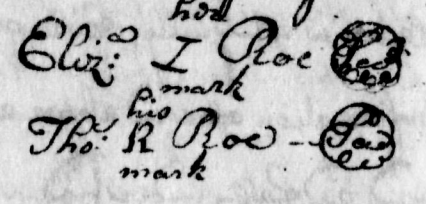 her
Eliz:ª I Roe Seal
mark
his
Tho:ˢ R Roe -- Seal
mark